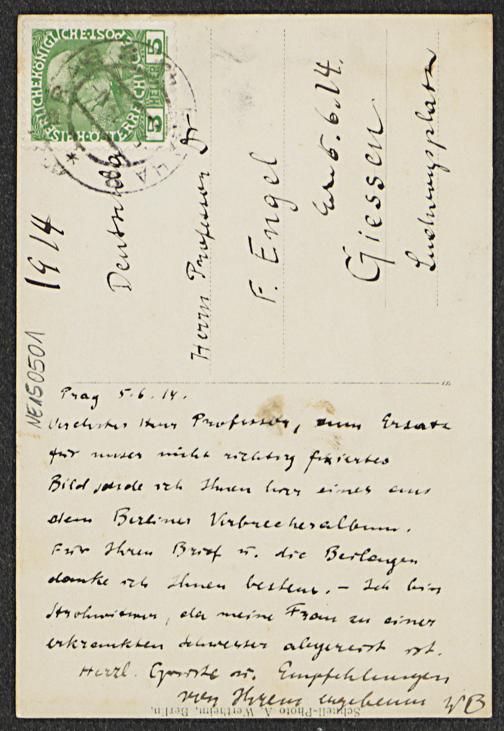 5 HELLER 5
PRAG
PRAHA
Deutschld
Herrn Professor Dr
F. Engel
Err 5.6.14.
Giessen
Ludwigsplatz
1914
NE150501
Prag 5.6.14.
Verehrter Herr Professor, zum Ersatz
für unser nicht richtig fixiertes
Bild sende ich Ihnen hier eines aus
dem Berliner Verbrecheralbum.
Für Ihren Brief u. die Beilagen
danke ich Ihnen bestens. – Ich bin
Strohwitwer, da meine Frau zu einer
erkrankten Schwester abgereist ist.
Herzl. Grüsse u. Empfehlungen
von Ihrem ergebenen WB
Schnell-Photo A. Wertheim, Berlin.